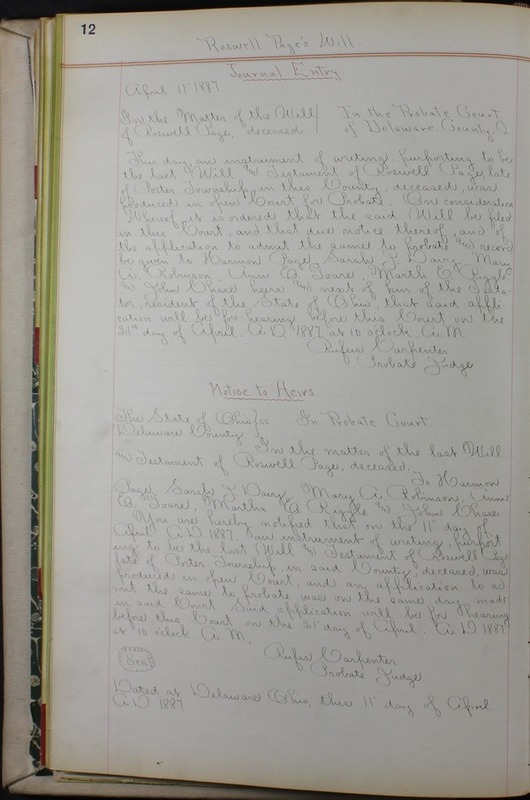 12
Roswell Page's Will.
Journal Entry.
April 11" 1887.
In the Matter of the Will | In the Probate Court
of Roswell Page, deceased | of Delaware County, O.
This day an instrument of writing, purporting to be
the last Will and Testament of Roswell Page, late
of Porter Township, in this County, deceased, was
produced in open Court for Probate. On consideration
Whereof, it is ordered that the said Will be filed
in this Court, and that due notice thereof, and of
the application to admit the same to probate and record
be given to Harmon Page, Sarah J. Mary
A. Robinson, Ann E. Martha E. Riggle
and John Chase heirs and next of kin of the Testa-
tor, resident of the State of Ohio, that said appli-
cation will be for hearing before this Court on the
21st day of April. A.D. 1887 at 10 o'clock A.M.
Rufus Carpenter
Probate Judge
Notice to Heirs.
The State of Ohio } ss In Probate Court.
Delaware County
In the matter of the last Will
and Testament of Roswell Page, deceased.
To Harmon
Page, Sarah J. Mary A. Robinson, Anna
E. Martha E. Riggle and John Chase:
You are hereby notified that on the 11" day of
April A.D. 1887, an instrument of writing, purport
ing to be the last Will and Testament of Roswell Page
late of Porter Township, in said County, deceased, was
produced in open Court, and an application to ad-
mit the same to probate was on the same day made
in said Court. Said application will be for hearing
before this Court on the 21" day of April. A.D. 1887
at 10 o'clock A.M.
Rufus Carpenter
Seal
Probate Judge
Dated at Delaware Ohio, this 11" day of April
A.D. 1887